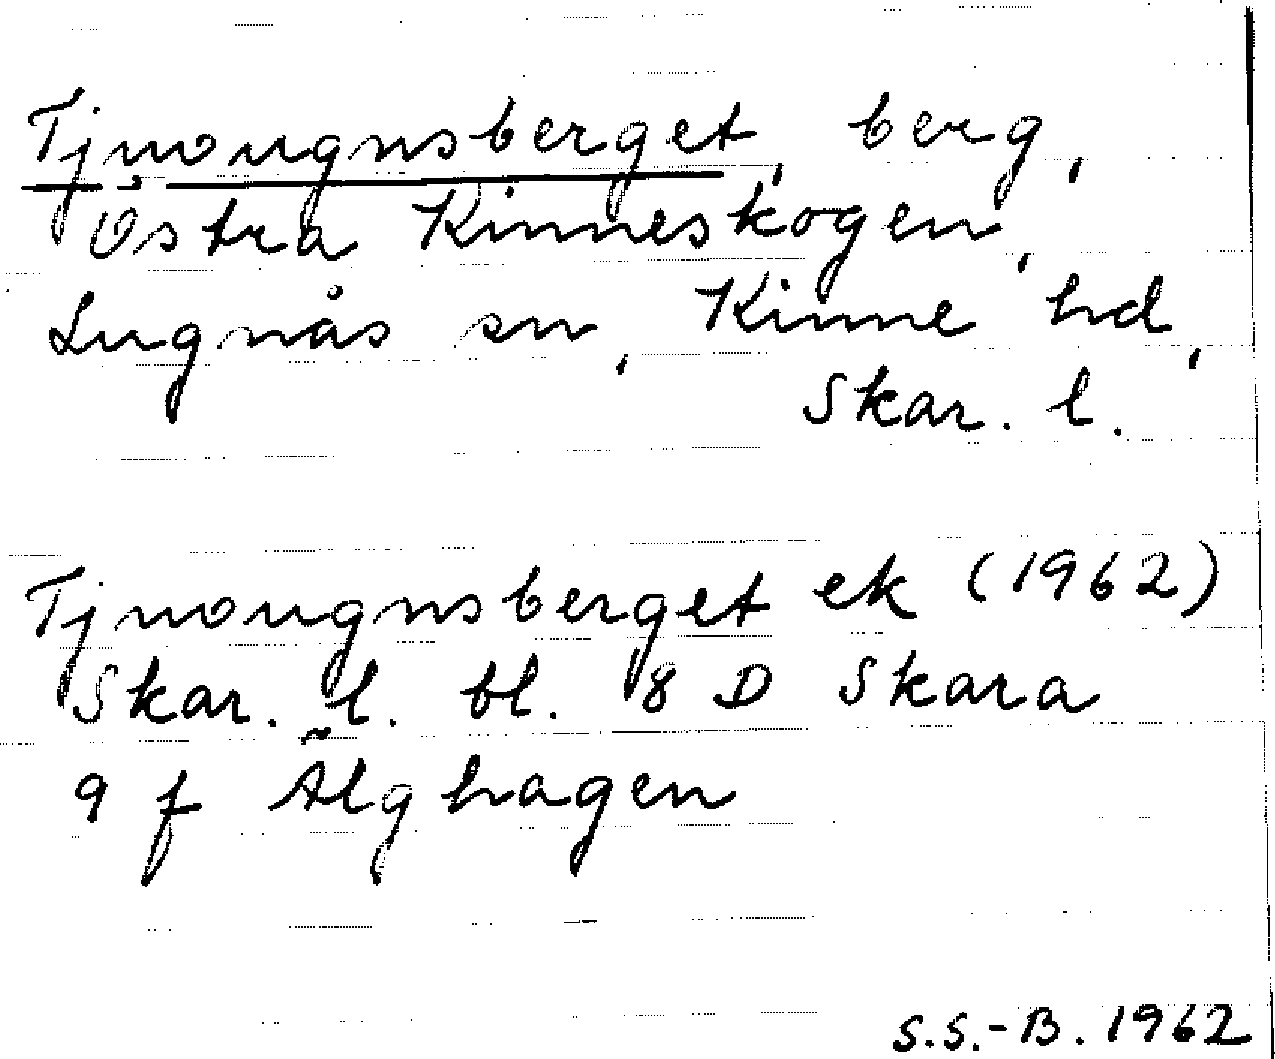 Tjuvugnsberget, berg,
Östra Kinneskogen,
Lugnås sn, Kinne hd,
Skar. l.
Tjuvugnsberget ek (1962)
Skar. l. bl. 8 D Skara
9 f Älghagen
S.S.-B. 1962